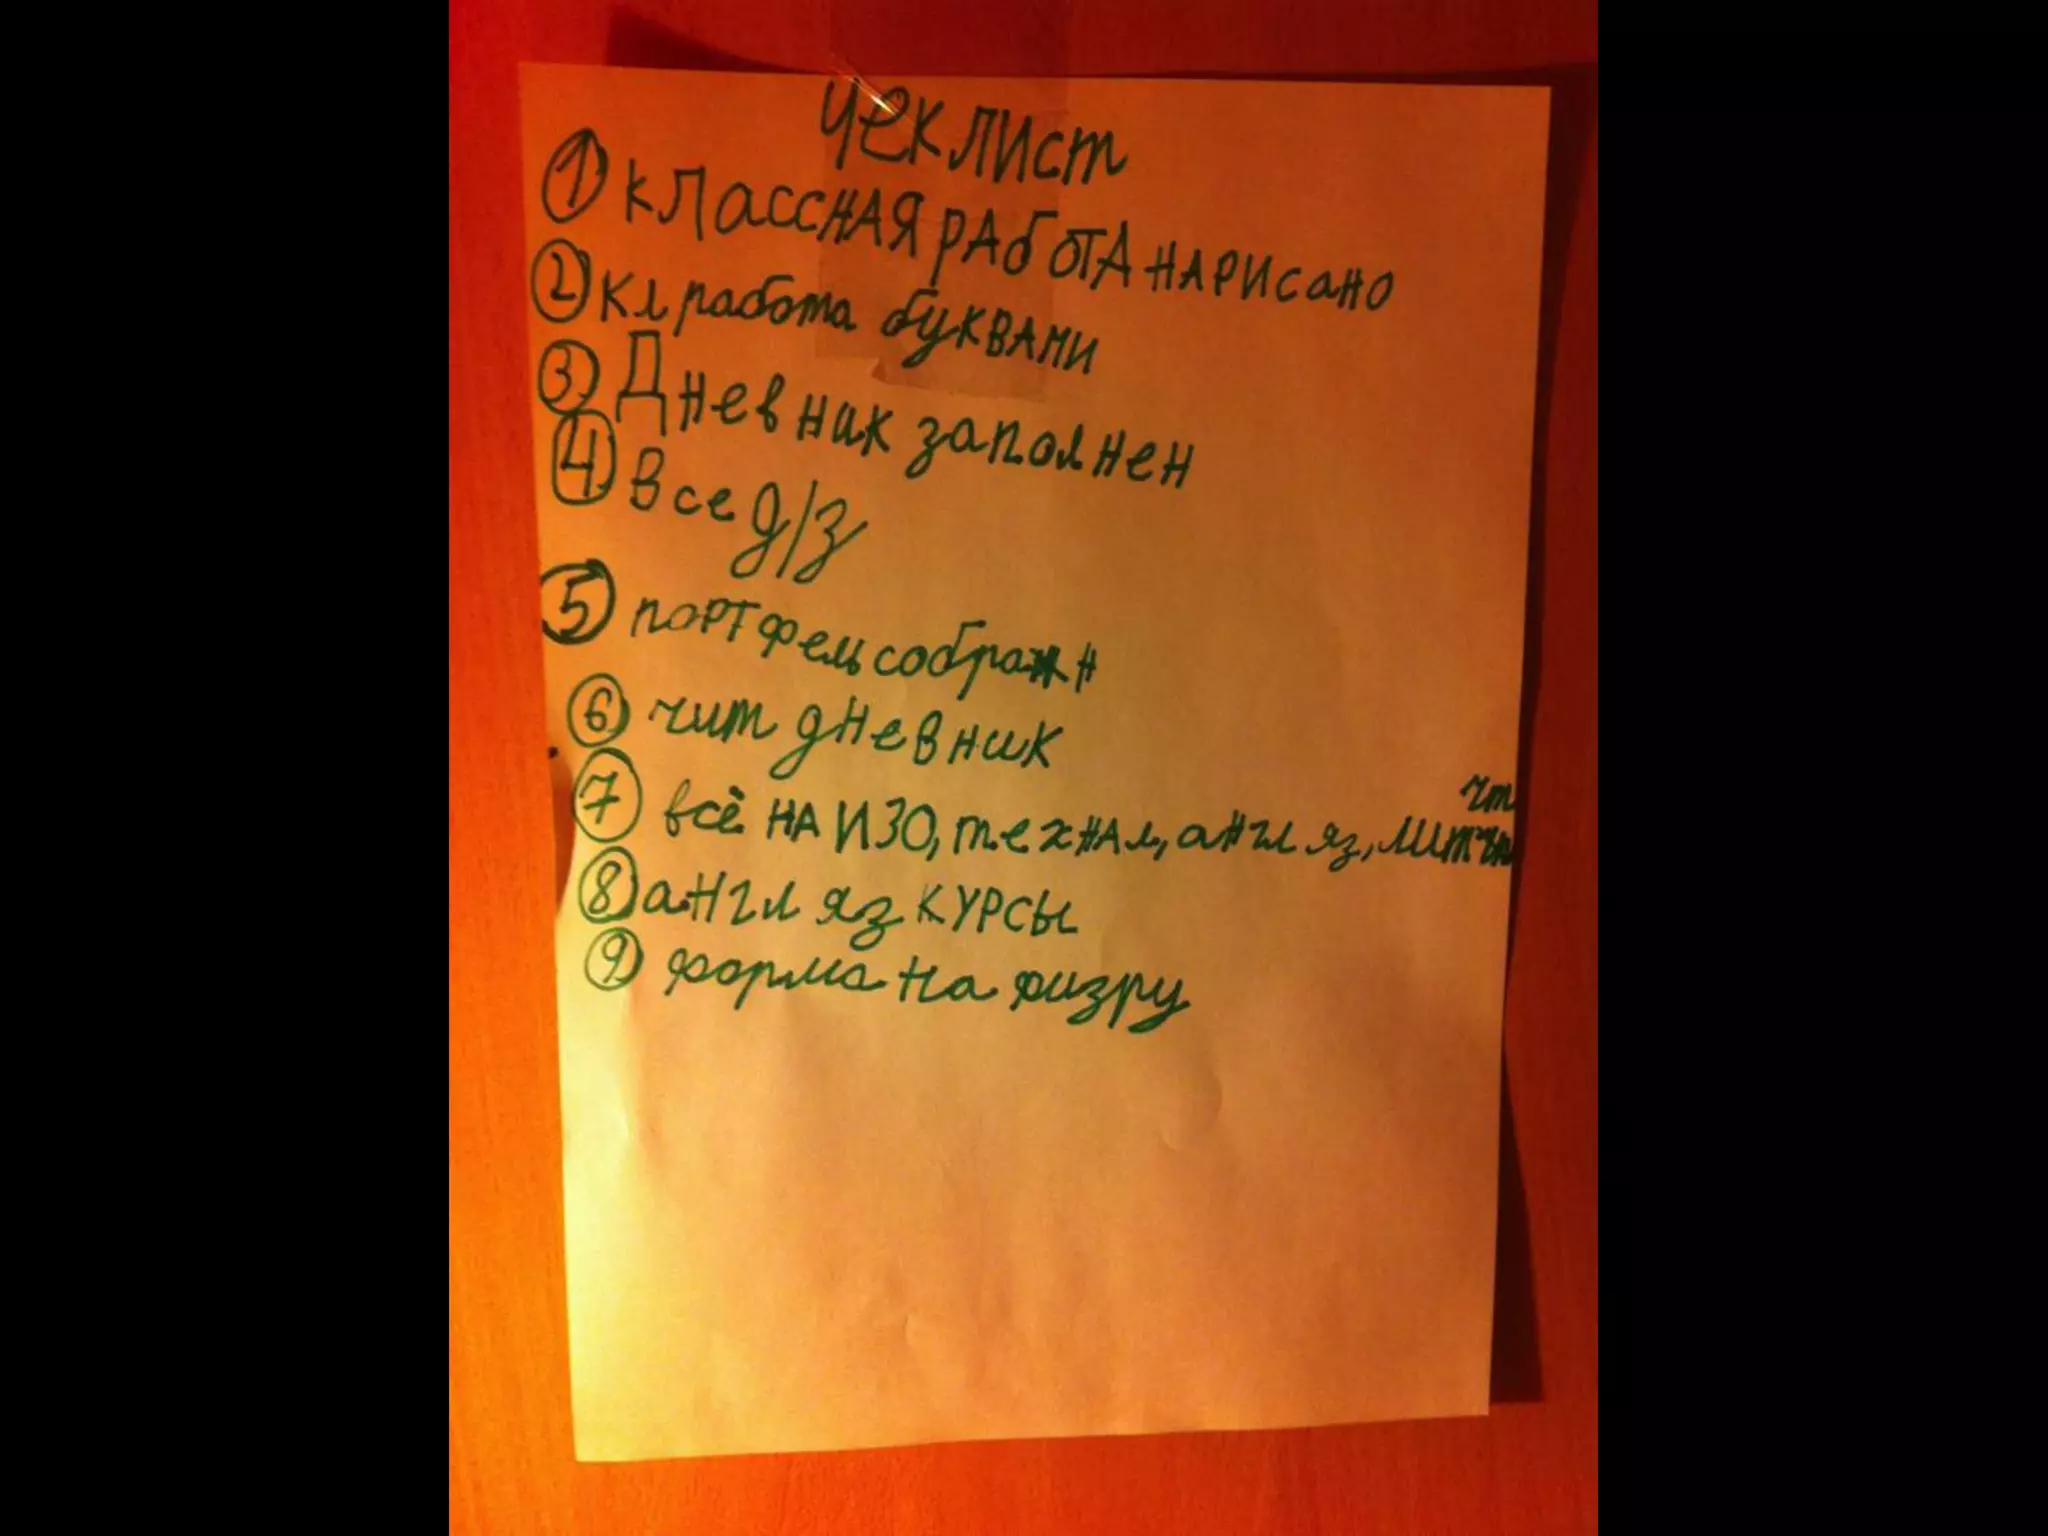 чек лист
1 классная работа нарисано
2 кл работа буквами
3 Дневник заполнен
4 Все д/з
5 портфель собран
6 чит дневник
7 всё на ИЗО, технал, англ яз, лит чт
8 англ яз курсы
9 форма на физру